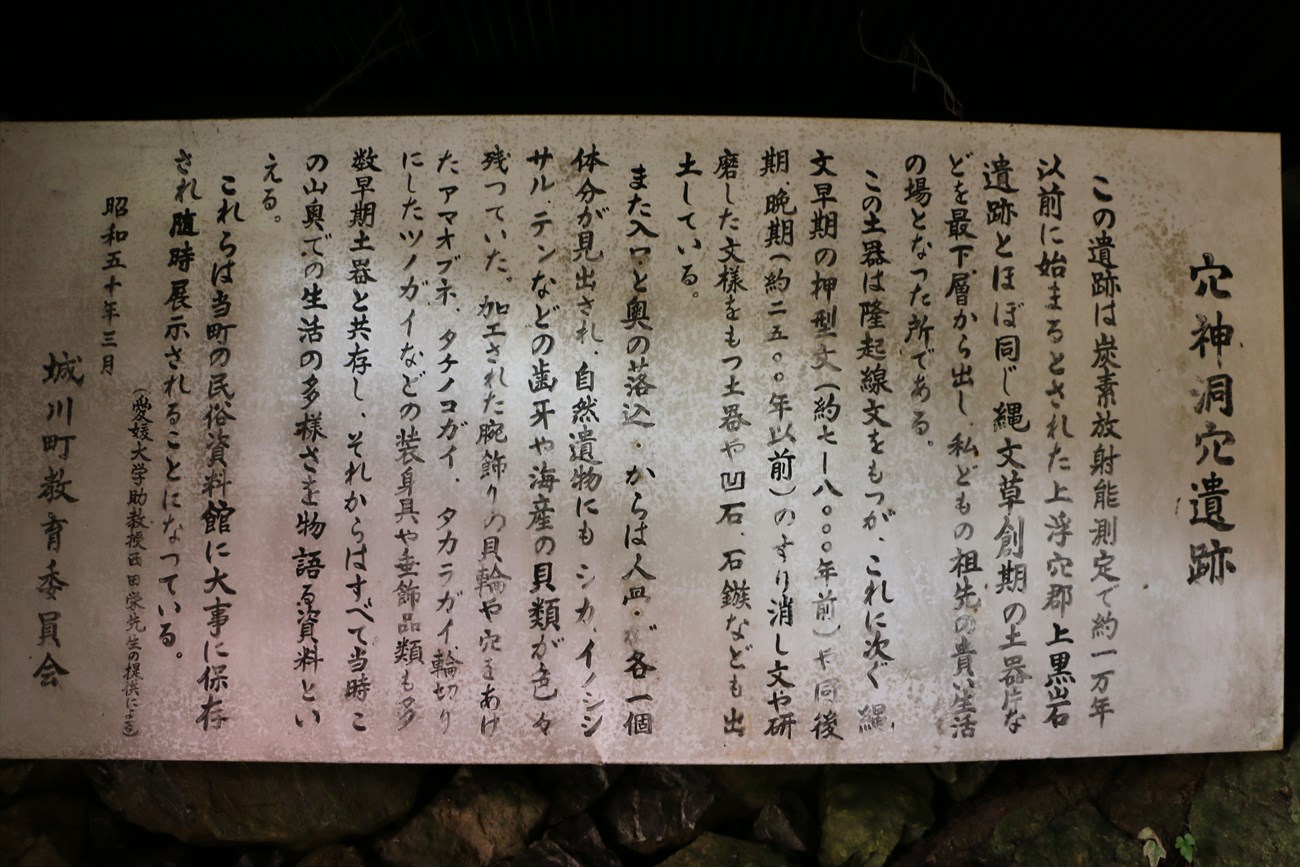 穴神洞穴遺跡
この遺跡は炭素放射能測定で約一万年
以前に始まるとされた上浮穴郡上黒岩
遺跡とほぼ同じ縄文草創期の土器片な
どを最下層から出し、私どもの祖先の貴い生活
の場となった所である。
この土器は隆起線文をもつが、これに次ぐ縄
文早期の押型文(約七ー八〇〇〇年前)や同後
期、晩期(約二五〇〇年以前)のすり消し文や研
磨した文様をもつ土器や凹石、石鏃なども出
土している。
また入口と奥の落込 からは人 各一個
体分が見出され、自然遺物にもシカ、イノシシ
サル、テンなどの歯牙や海産の貝類が色々
残っていた。加工された腕飾りの貝輪や穴をあけ
たアマオブネ、タチノコガイ、タカラガイ、輪切り
にしたツノガイなどの装身具や垂飾品類も多
数早期土器と共存し、それからはすべて当時こ
の山奥での生活の多様さを物語る資料とい
える。
これらは当町の民俗資料館に大事に保存
され随時展示されることになっている。
(愛媛大学助教授西田栄先生の提供による)
昭和五十年三月
城川町教育委員会